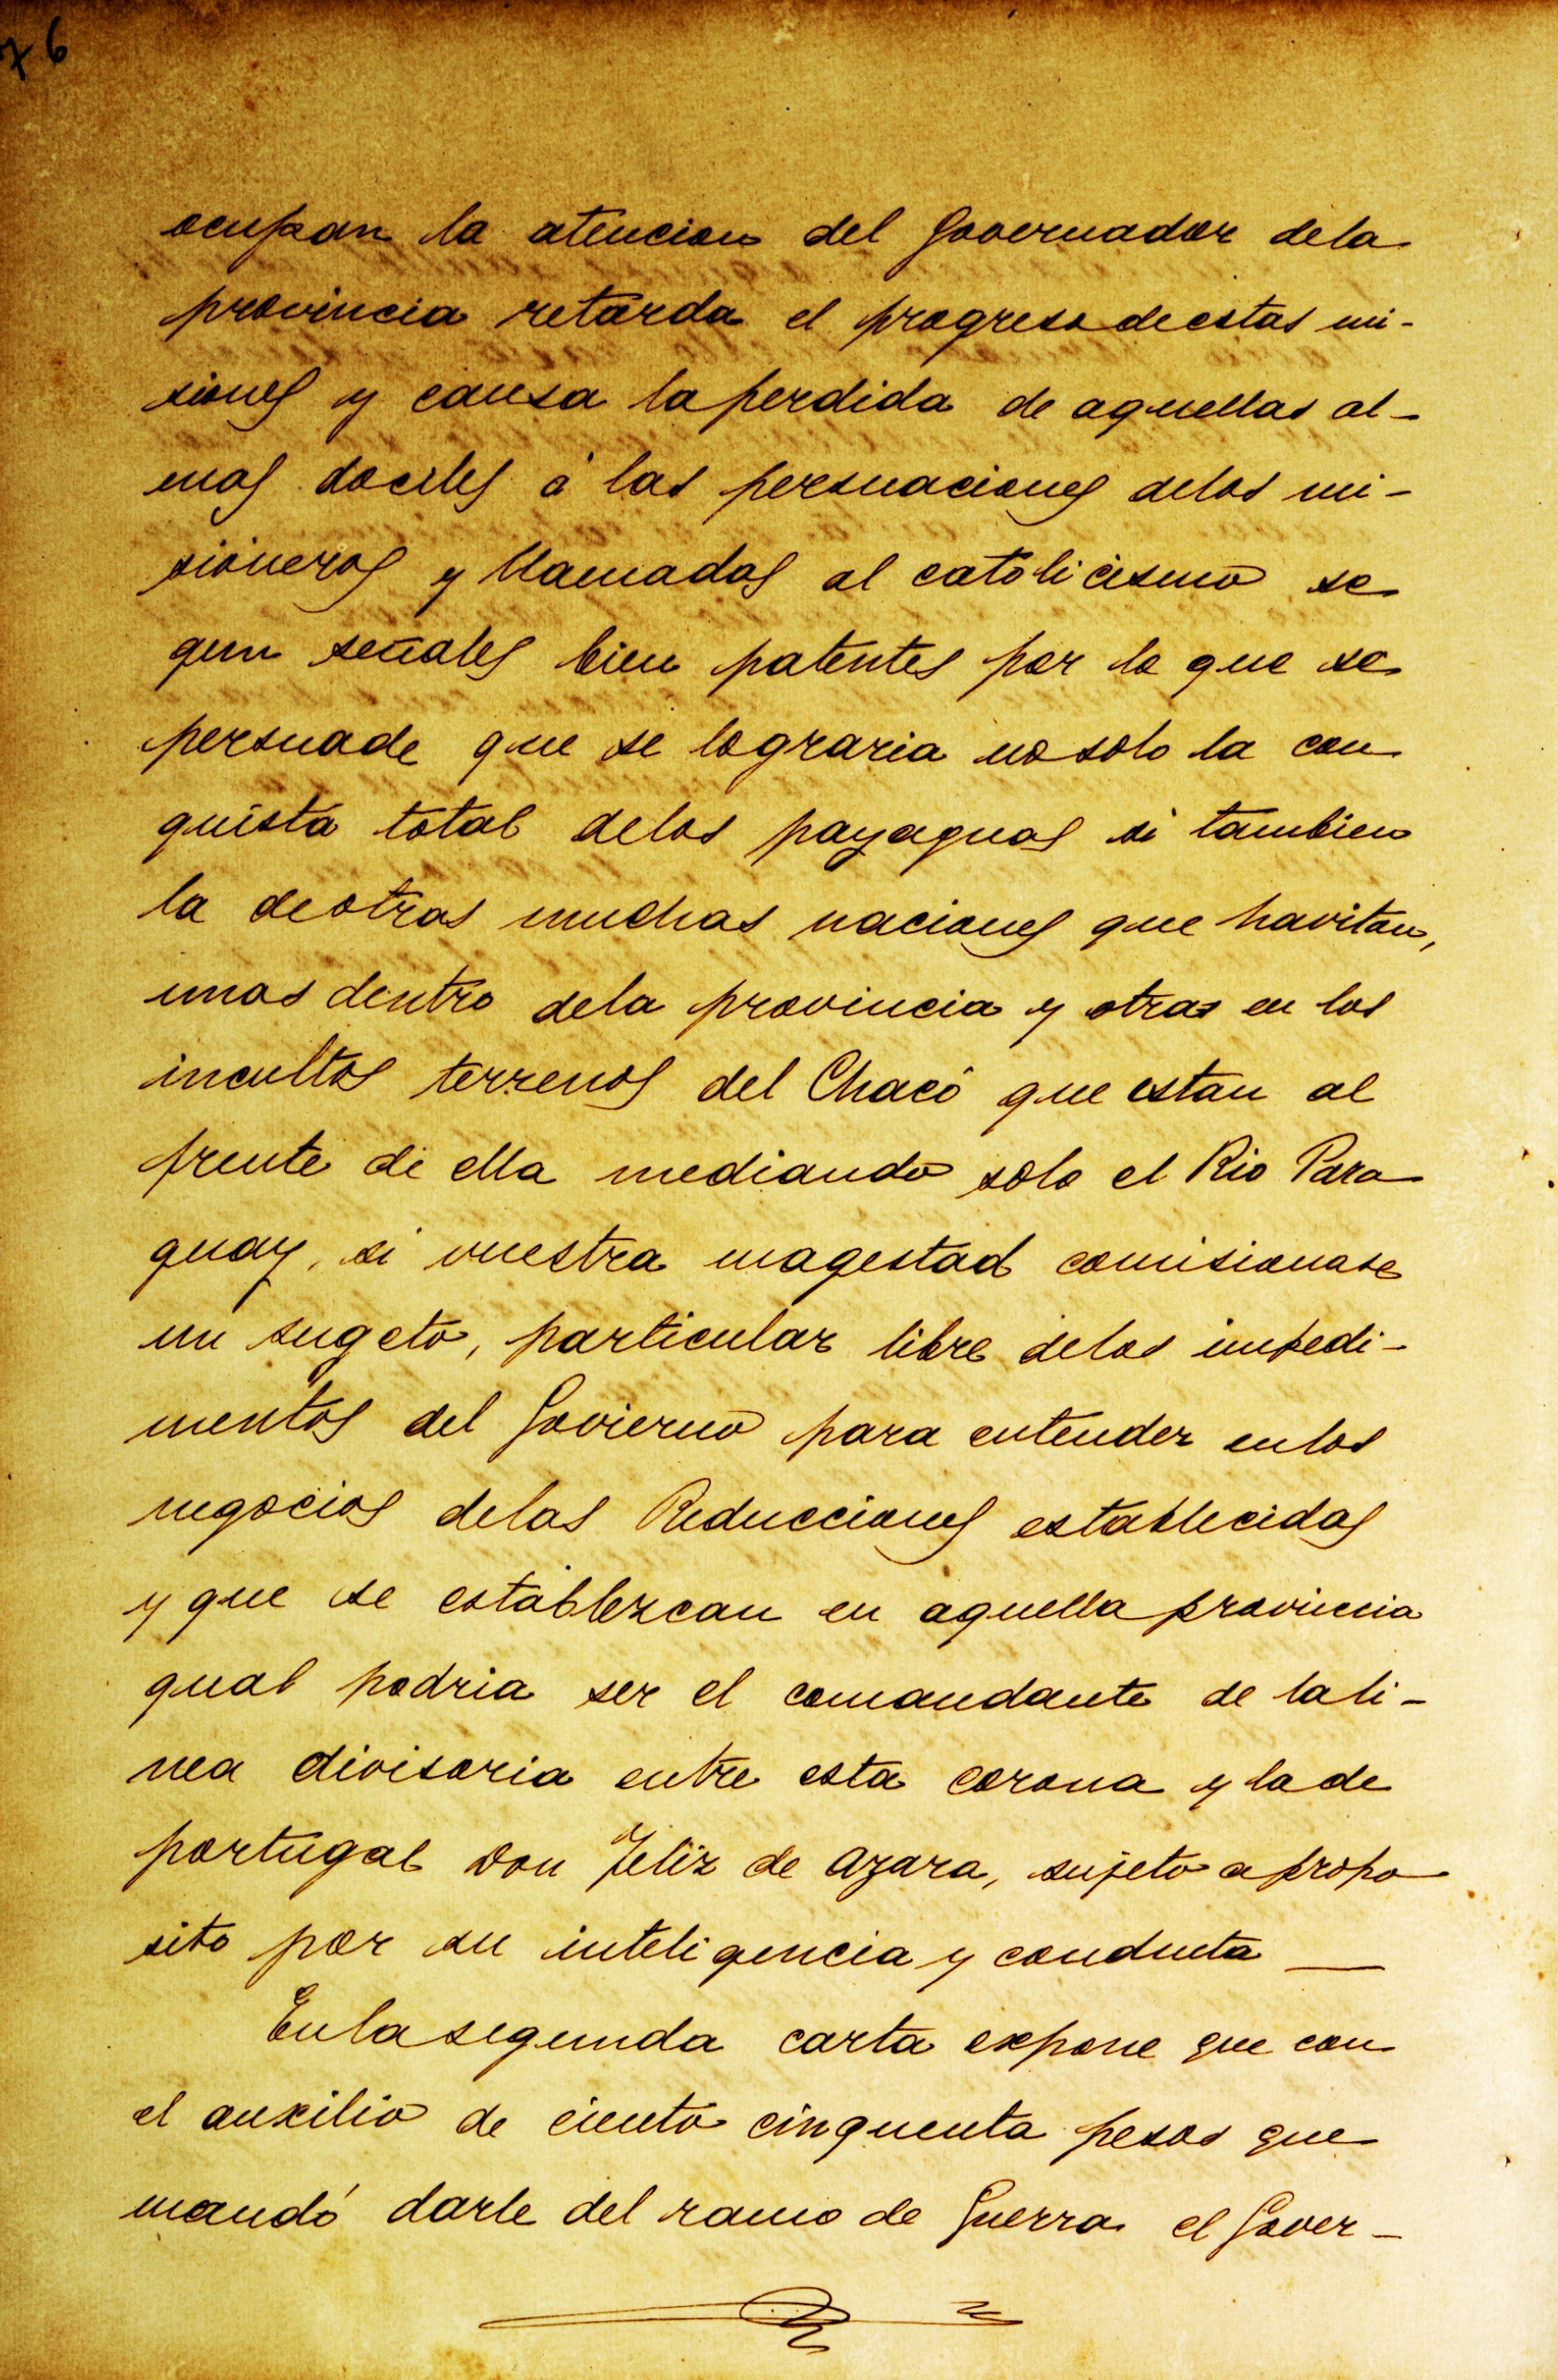 76
ocupan la atencion del Governador dela
provincia retarda el progreso deestas mi-
siones y causa la perdida de aquellas al-
mas dociles á las persuaciones delos mi-
sioneros y llamadas al catolicismo se
gun señales bien patentes por lo que se
persuade que se lograria no solo la con
quista total delos payaguas si tambien
la deotras muchas naciones que havitan,
unas dentro dela provincia y otras en los
incultos terrenos del Chaco que estan al
frente de ella mediando solo el Rio Para
guay, si vuestra magestad comisionase
un sugeto, particular libre delos impedi-
mentos del Govierno para entender enlos
negocios delas Reducciones establecidas
y que se establezcan en aquella provincia
qual podria ser el comandante de la li-
nea divisoria entre esta corona y la de
portugal Don Feliz de Azara, sujeto a propo
sito por su inteligencia y conducta —
Enla segunda carta expone que con
el auxilio de ciento cinquenta pesos que
mandó darle del ramo de Guerra el Gover-